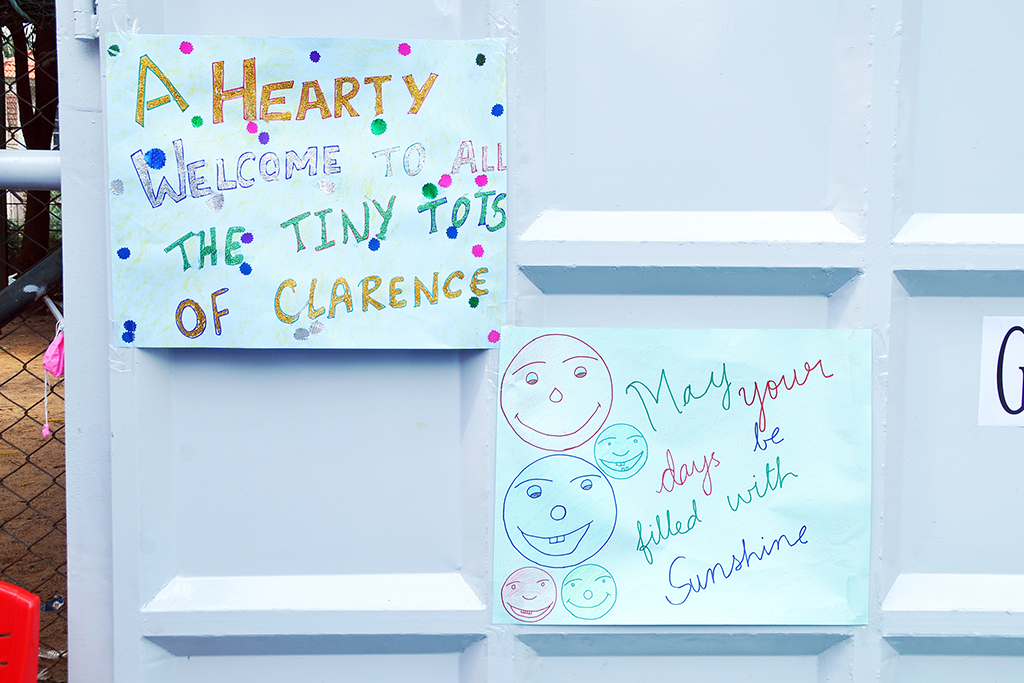 A HEARTY
WELCOME TO ALL
THE TINY TOTS
OF CLARENCE
May your
days be
filled with
Sunshine
G